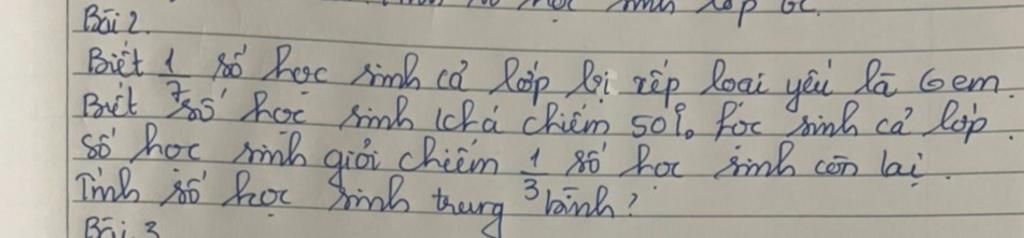 học sinh lớp 6c.
Bài 2.
Biết 1/7 số học sinh cả lớp bị xếp loại yếu là 6 em.
Biết số học sinh khá chiếm 50% học sinh cả lớp.
số học sinh giỏi chiếm 1/3 số học sinh còn lại.
Tính số học sinh trung bình?
Bài 3